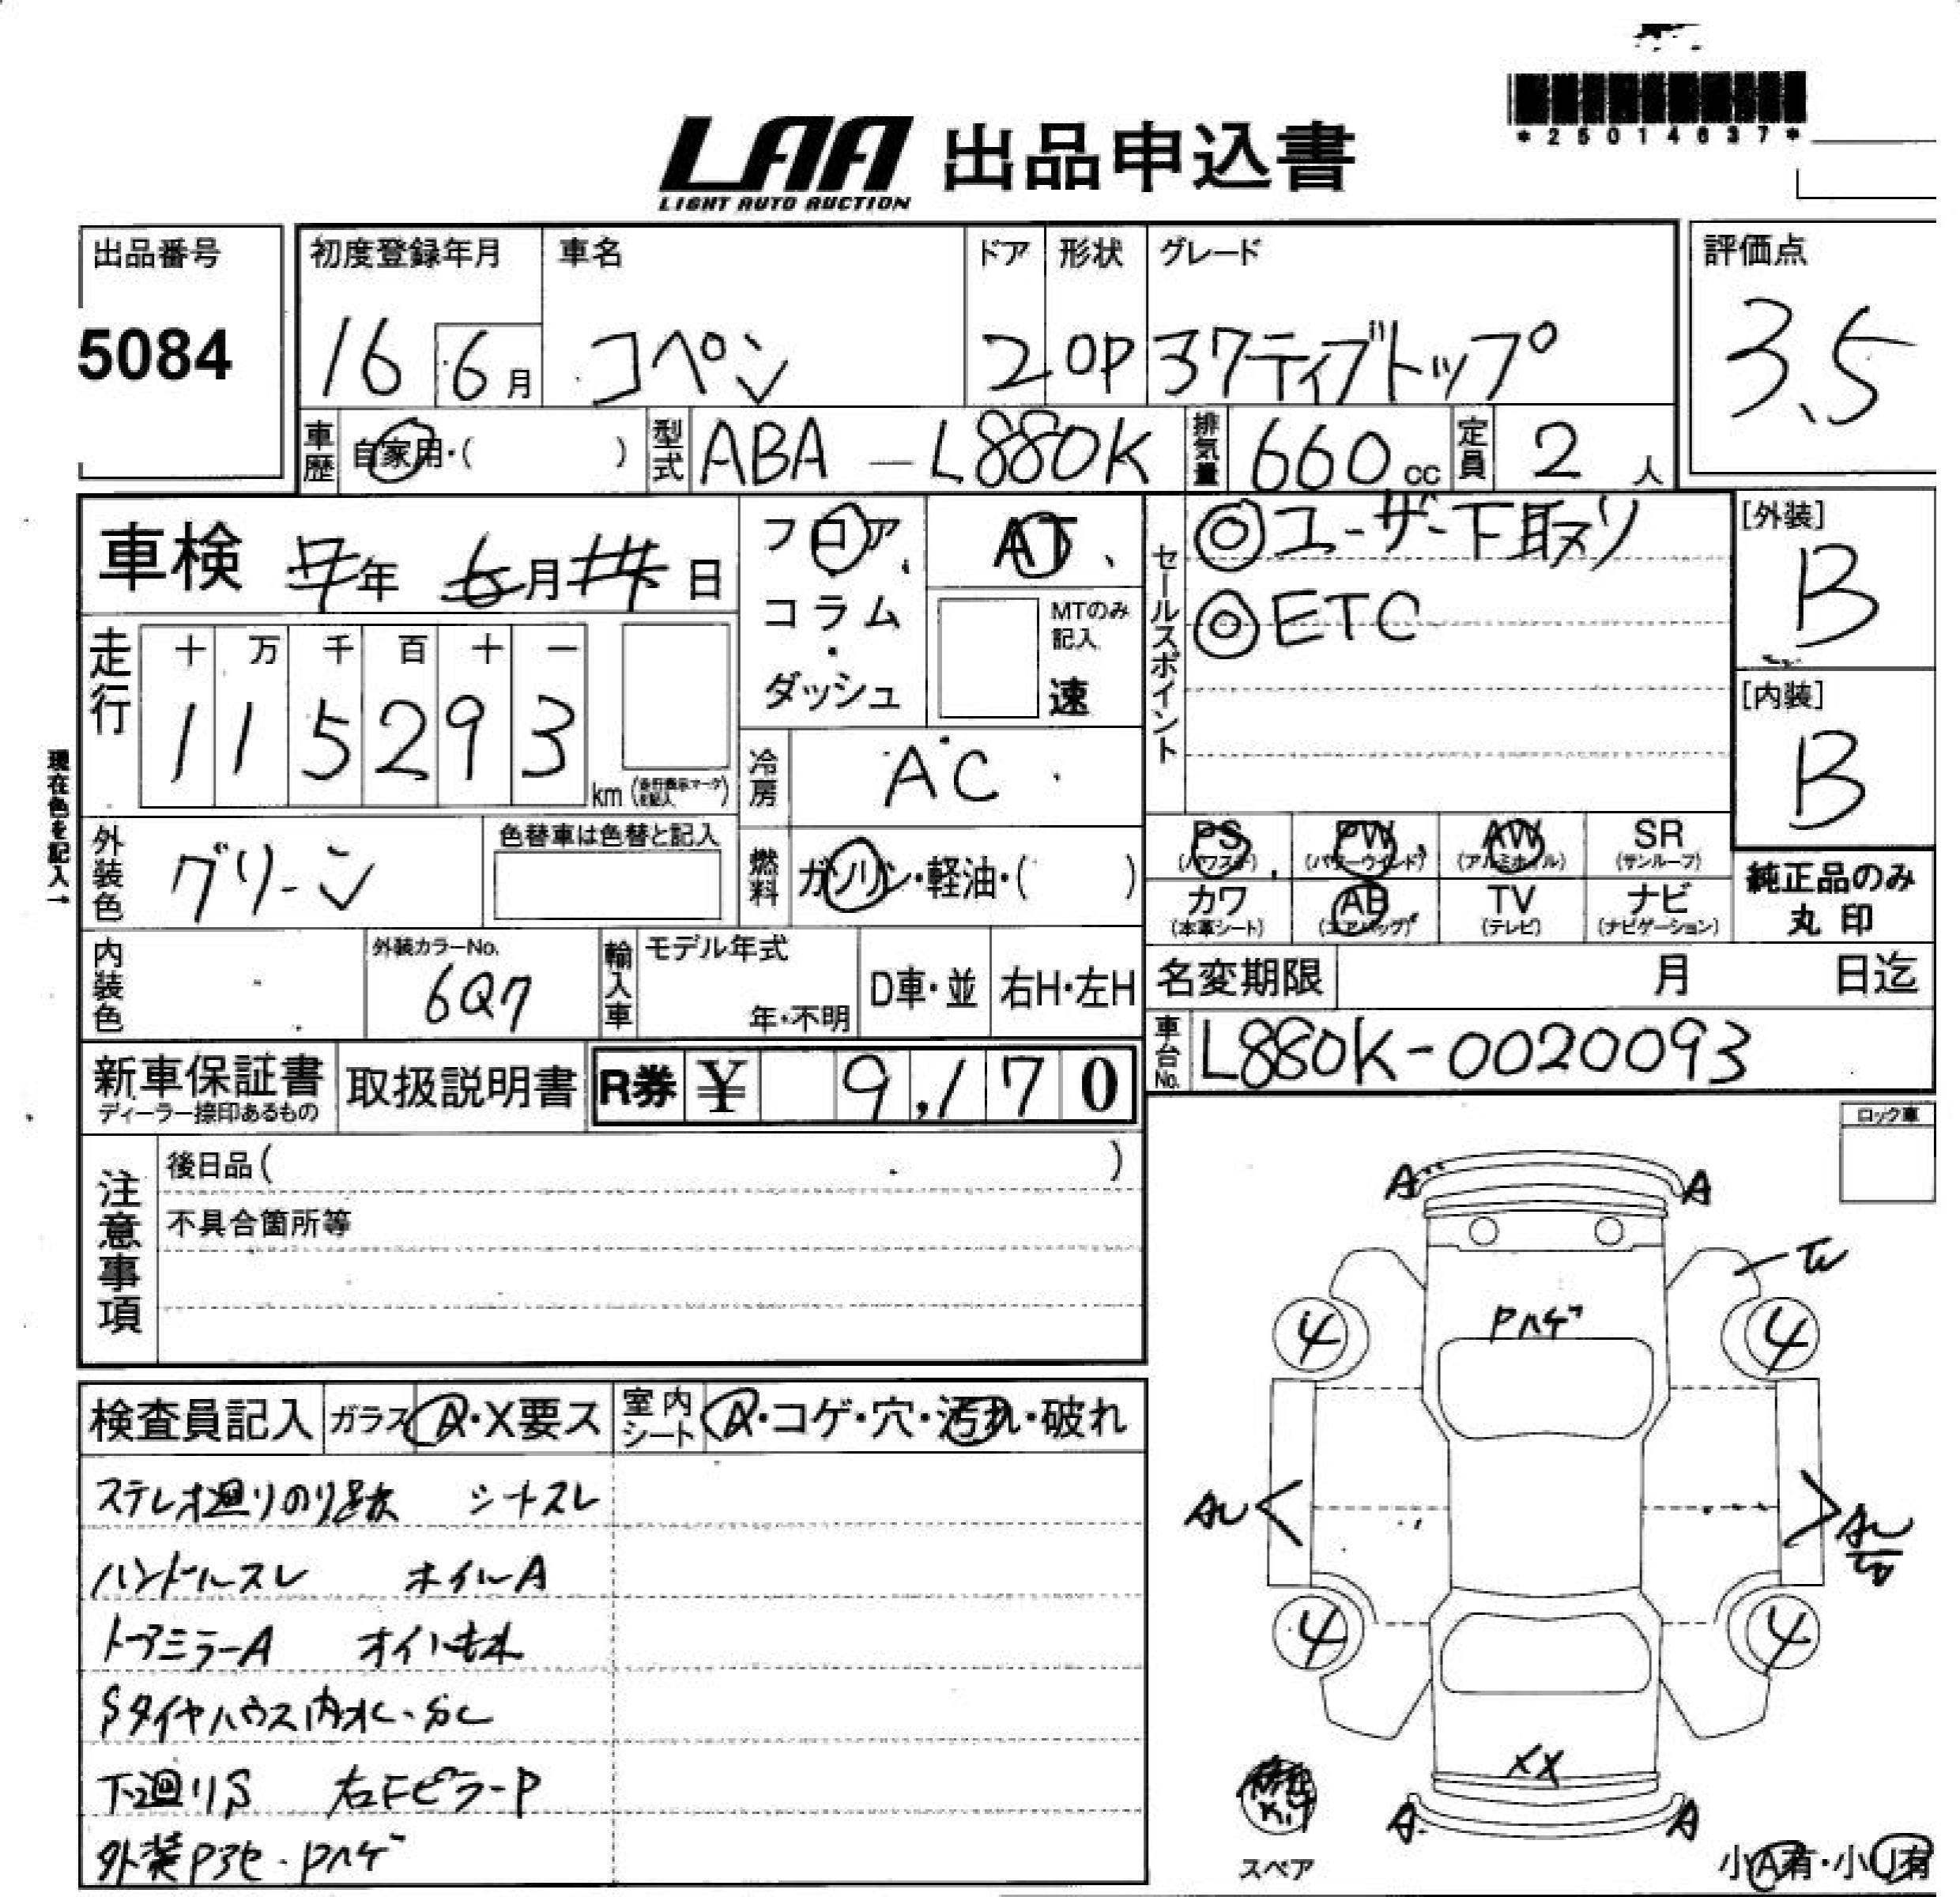 *25014637*
LAA 出品申込書
LIGHT AUTO AUCTION
出品番号
5084
初度登録年月 車名 ドア 形状 グレード
16 6月 コペン 2 OP アクティブトップ
評価点
3.5
車歴 自家用・( ) 型式 ABA-L880K 排気量 660cc 定員 2人
車検 年 6月 日
フロア・コラム・ダッシュ
AT、
MTのみ記入
速
セールスポイント
◎ユーザー下取り
◎ETC
[外装]
B
[内装]
B
走行 十 万 千 百 十 一
1 1 5 2 9 3 km
冷房 AC
現在色を記入→
外装色 グリーン 色替車は色替と記入
燃料 ガソリン・軽油・( )
PS PW AW SR
(パワステ) (パワーウインド) (アルミホイル) (サンルーフ)
カワ AB TV ナビ
(本革シート) (エアバッグ) (テレビ) (ナビゲーション)
純正品のみ
丸印
内装色 外装カラーNo. 6Q7
輸入車 モデル年式 年・不明 D車・並 右H・左H
名変期限 月 日迄
車台No. L880K-0020093
新車保証書 取扱説明書 R券 ¥ 9,170
ディーラー捺印あるもの
ロック車
注意事項
後日品( )
不具合箇所等
検査員記入 ガラス A・X要ス 室内シート A・コゲ・穴・汚れ・破れ
ステレオ廻りのり跡 シートスレ
ハンドルスレ ホイルA
ドアミラーA オイルもれ
Sタイヤハウス内
下廻りS 右Fピラーp
外装Pアセ・Pハゲ
A A
Pハゲ
4 4
4 4
XX
A A
スペア
小A有・小U有